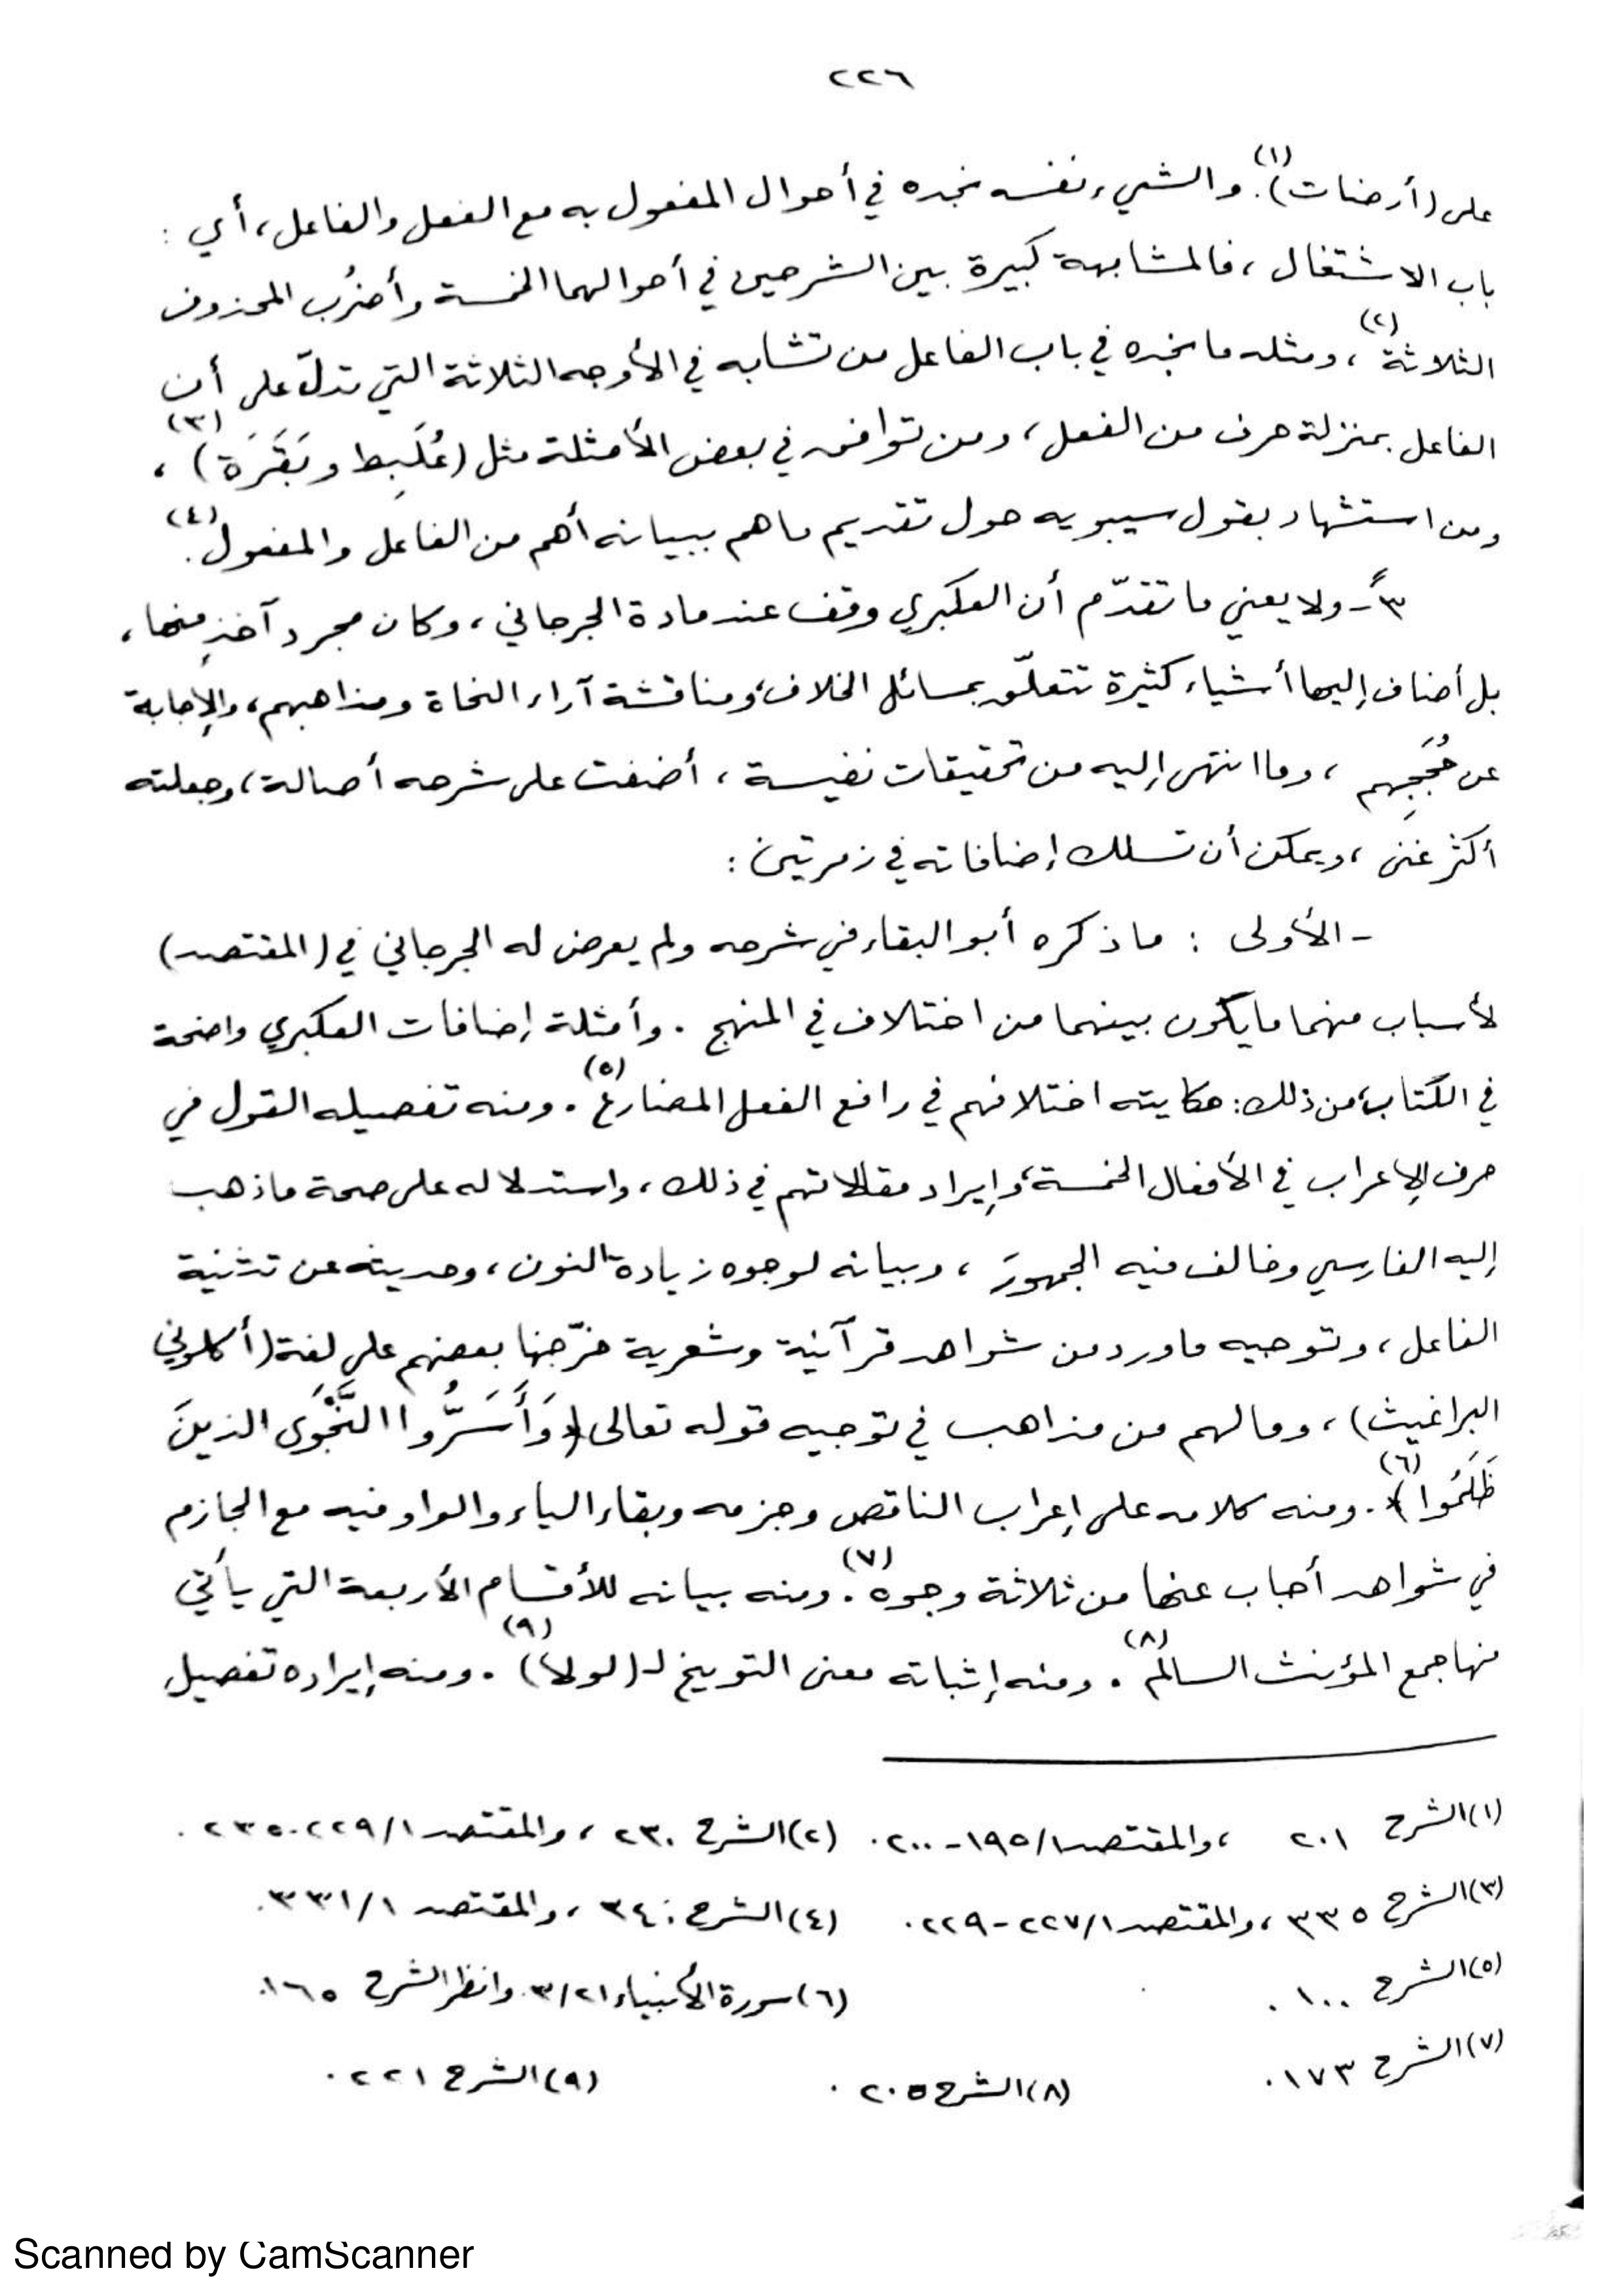 ٢٢٦
على (أرضات)(١). والشيء نفسه نجده في أحوال المفعول به مع الفعل والفاعل، أي :
باب الاشتغال ، فالمشابهة كبيرة بين الشرحين في أحوالهما الخمسة وأضرُب المحذوف
الثلاثة(٢)، ومثله ما نجده في باب الفاعل من تشابه في الأوجه الثلاثة التي تدلّ على أن
الفاعل بمنزلة حرف من الفعل ، ومن توافق في بعض الأمثلة مثل (عُلَبِط وبَقَرَة)(٣) ،
ومن استشهاد بقول سيبويه حول تقديم ما هم ببيانه أهم من الفاعل والمفعول(٤).
٣ً- ولا يعني ما تقدّم أن العكبري وقف عند مادة الجرجاني ، وكان مجرد آخذٍ منها ،
بل أضاف إليها أشياء كثيرة تتعلّق بمسائل الخلاف، ومناقشة آراء النحاة ومذاهبهم، والإجابة
عن حُجَجِهم ، وما انتهى إليه من تحقيقات نفيسة ، أضفت على شرحه أصالة ، وجعلته
أكثر غنى ، ويمكن أن تسلك إضافاته في زمرتين :
- الأولى : ما ذكره أبو البقاء في شرحه ولم يعرض له الجرجاني في (المقتصد)
لأسباب منهما ما يكون بينهما من اختلاف في المنهج . وأمثلة إضافات العكبري واضحة
في الكتاب، من ذلك: حكايته اختلافهم في رافع الفعل المضارع(٥). ومنه تفصيله القول في
حرف الإعراب في الأفعال الخمسة، وإيراد مقالاتهم في ذلك ، واستدلاله على صحة ما ذهب
إليه الفارسي وخالف فيه الجمهورَ ، وبيانه لوجوه زيادة النون ، وحديثه عن تثنية
الفاعل ، وتوجيه ما ورد من شواهد قرآنية وشعرية خرّجها بعضهم على لغة (أكلوني
البراغيث) ، وما لهم من مذاهب في توجيه قوله تعالى ﴿وَأَسَرُّوا النَّجْوَى الذينَ
ظَلَمُوا﴾(٦). ومنه كلامه على إعراب الناقص وجزمه وبقاء الياء والواو فيه مع الجازم
في شواهد أجاب عنها من ثلاثة وجوه(٧). ومنه بيانه للأقسام الأربعة التي يأتي
منها جمع المؤنث السالم(٨). ومنه إثباته معنى التوبيخ لـ (لولا)(٩). ومنه إيراده تفصيل
(١) الشرح ٢٠١ ، والمقتصد ١/١٩٥-٢٠٠. (٢) الشرح ٢٣٠ ، والمقتصد ١/٢٢٩-٢٣٥ .
(٣) الشرح ٣٣٥ ، والمقتصد ١/٢٢٧-٢٢٩. (٤) الشرح : ٣٤٠ ، والمقتصد ١/٣٣١.
(٥) الشرح ١٠٠ . (٦) سورة الأنبياء ٣/٢١. وانظر الشرح ١٦٥.
(٧) الشرح ١٧٣. (٨) الشرح ٢٠٥ . (٩) الشرح ٢٢١ .
Scanned by CamScanner